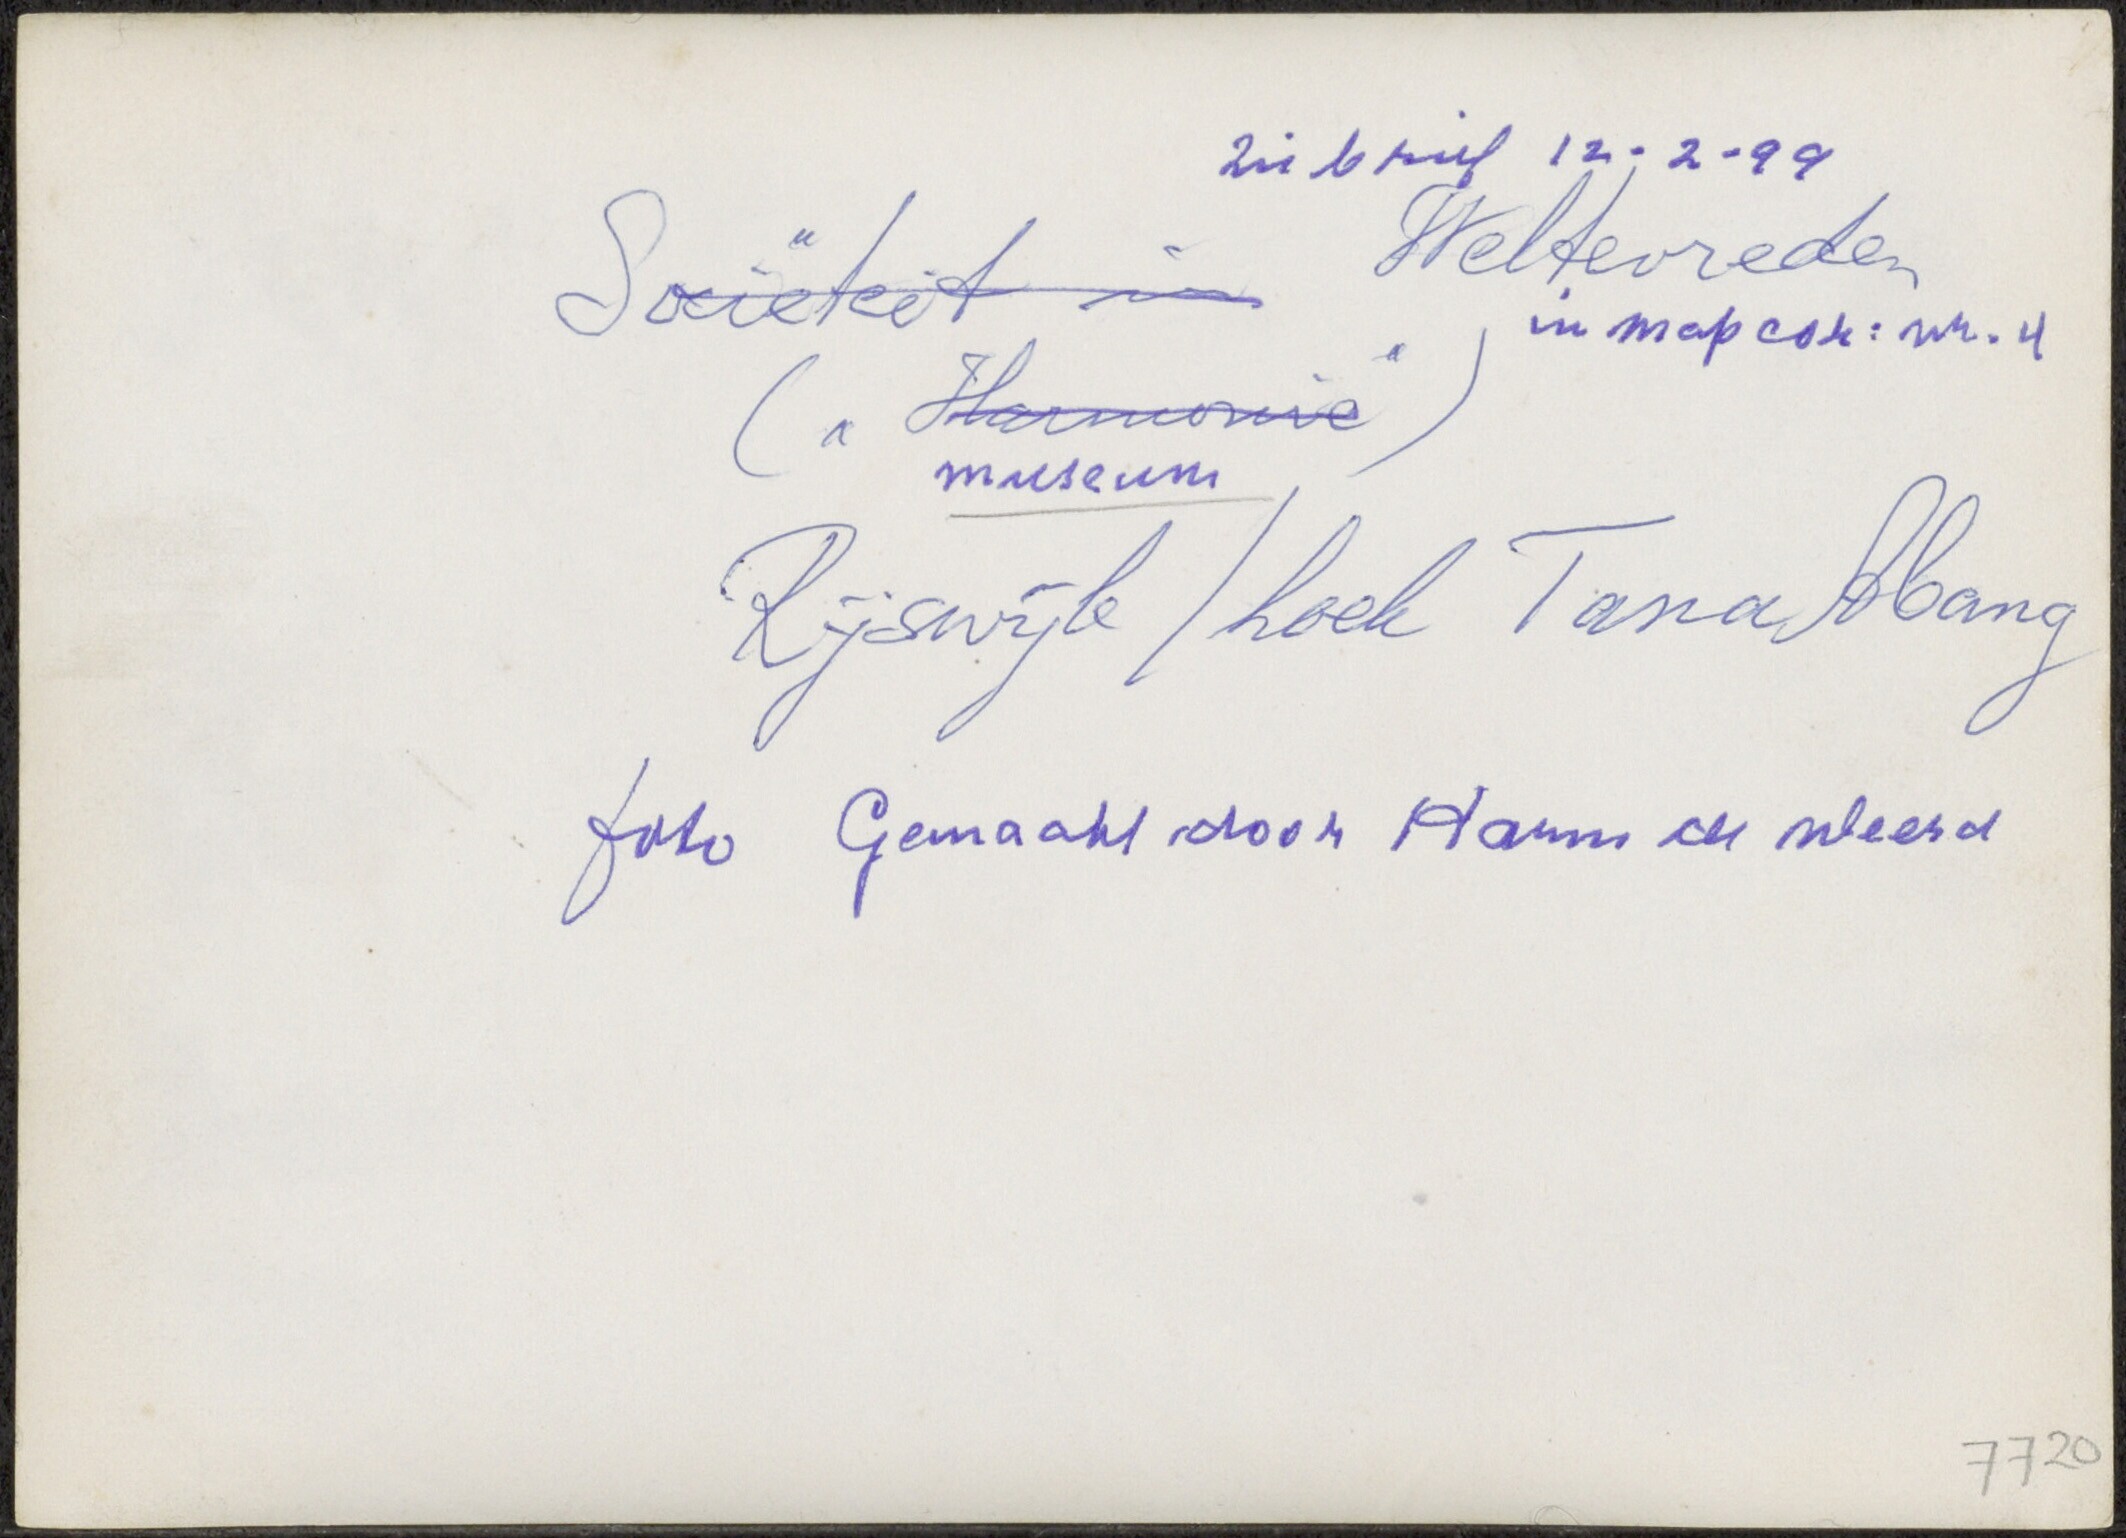 zie brief 12-2-99
Sociëteit in Weltevreden
in map cor: nr. 4
("Harmonie")
museum
Rijswijk / hoek Tana Abang
foto Gemaakt door Harm de Weerd
7720